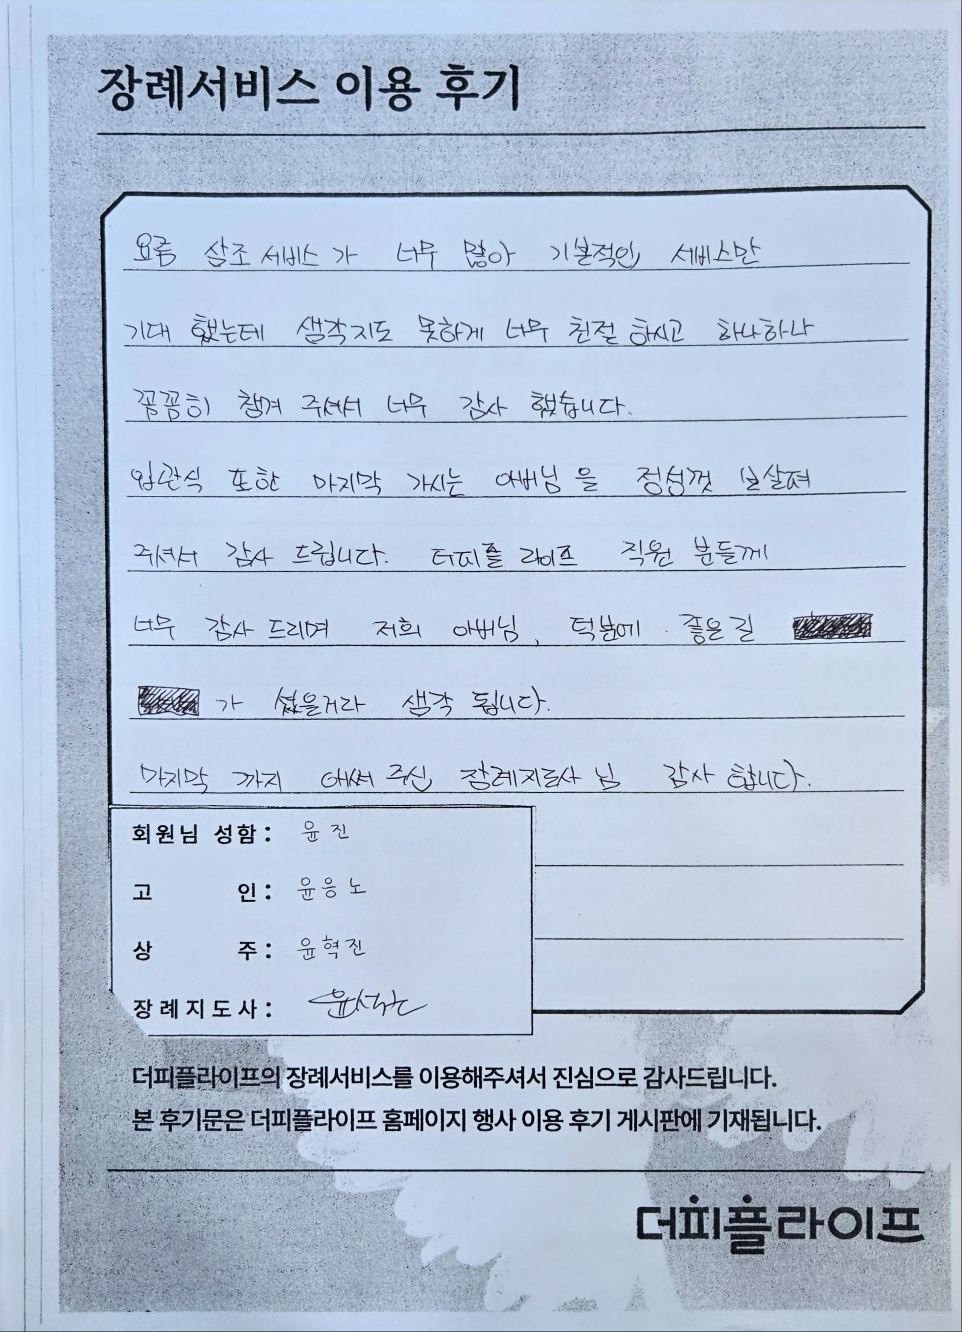 장례서비스 이용 후기
요즘 상조 서비스가 너무 많아 기본적인 서비스만
기대 했는데 생각지도 못하게 너무 친절 하시고 하나하나
꼼꼼히 챙겨 주셔서 너무 감사 했습니다.
입관식 또한 마지막 가시는 아버님을 정성껏 보살펴
주셔서 감사 드립니다. 더피플 라이프 직원 분들께
너무 감사 드리며 저희 아버님, 덕분에 좋은길
가 셨을거라 생각 됩니다.
마지막 까지 애써 주신 장례지도사 님 감사 합니다.
회원님 성함: 윤진
고 인: 윤응노
상 주: 윤혁진
장례지도사:
더피플라이프의 장례서비스를 이용해주셔서 진심으로 감사드립니다.
본 후기문은 더피플라이프 홈페이지 행사 이용 후기 게시판에 기재됩니다.
더피플라이프